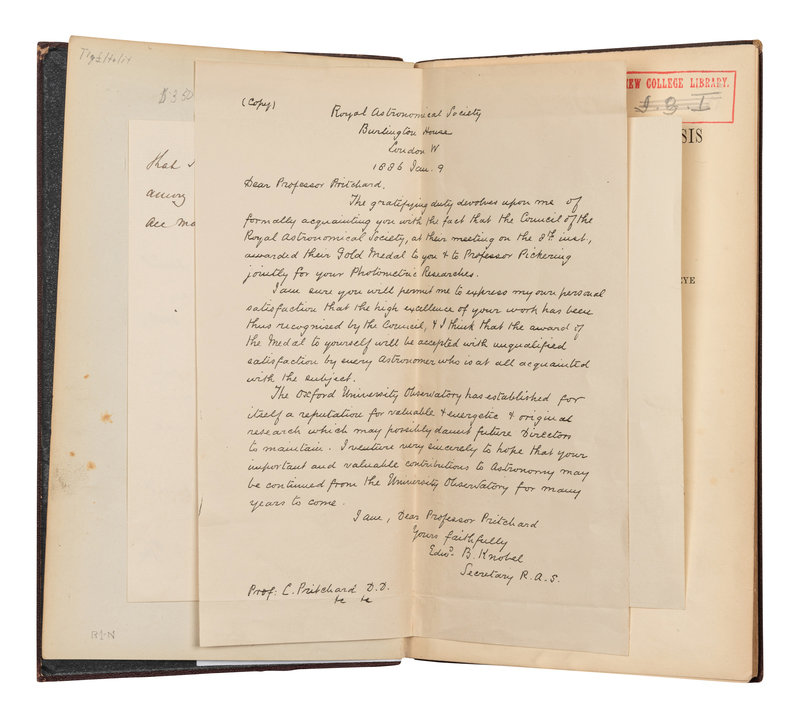 $350
NEW COLLEGE LIBRARY.
I.3.I
SIS
EYE
that
among
all
(Copy)
Royal Astronomical Society
Burlington House
London W
1886 Jan. 9
Dear Professor Pritchard,
The gratifying duty devolves upon me of
formally acquainting you with the fact that the Council of the
Royal Astronomical Society, at their meeting on the 8th inst,
awarded their Gold Medal to you & to Professor Pickering
jointly for your Photometric Researches.
I am sure you will permit me to express my own personal
satisfaction that the high excellence of your work has been
thus recognised by the Council, & I think that the award of
the Medal to yourself will be accepted with unqualified
satisfaction by every Astronomer who is at all acquainted
with the subject.
The Oxford University Observatory has established for
itself a reputation for valuable & energetic & original
research which may possibly daunt future Directors
to maintain. I venture very sincerely to hope that your
important and valuable contributions to Astronomy may
be continued from the University Observatory for many
years to come.
I am, Dear Professor Pritchard
Yours faithfully
Edwd. B. Knobel
Secretary R.A.S.
Prof: C. Pritchard D.D.
&c &c
B1-N